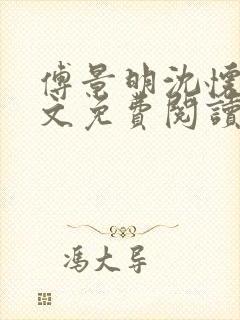 傅景明沈懷
文免費閱讀
馮大导